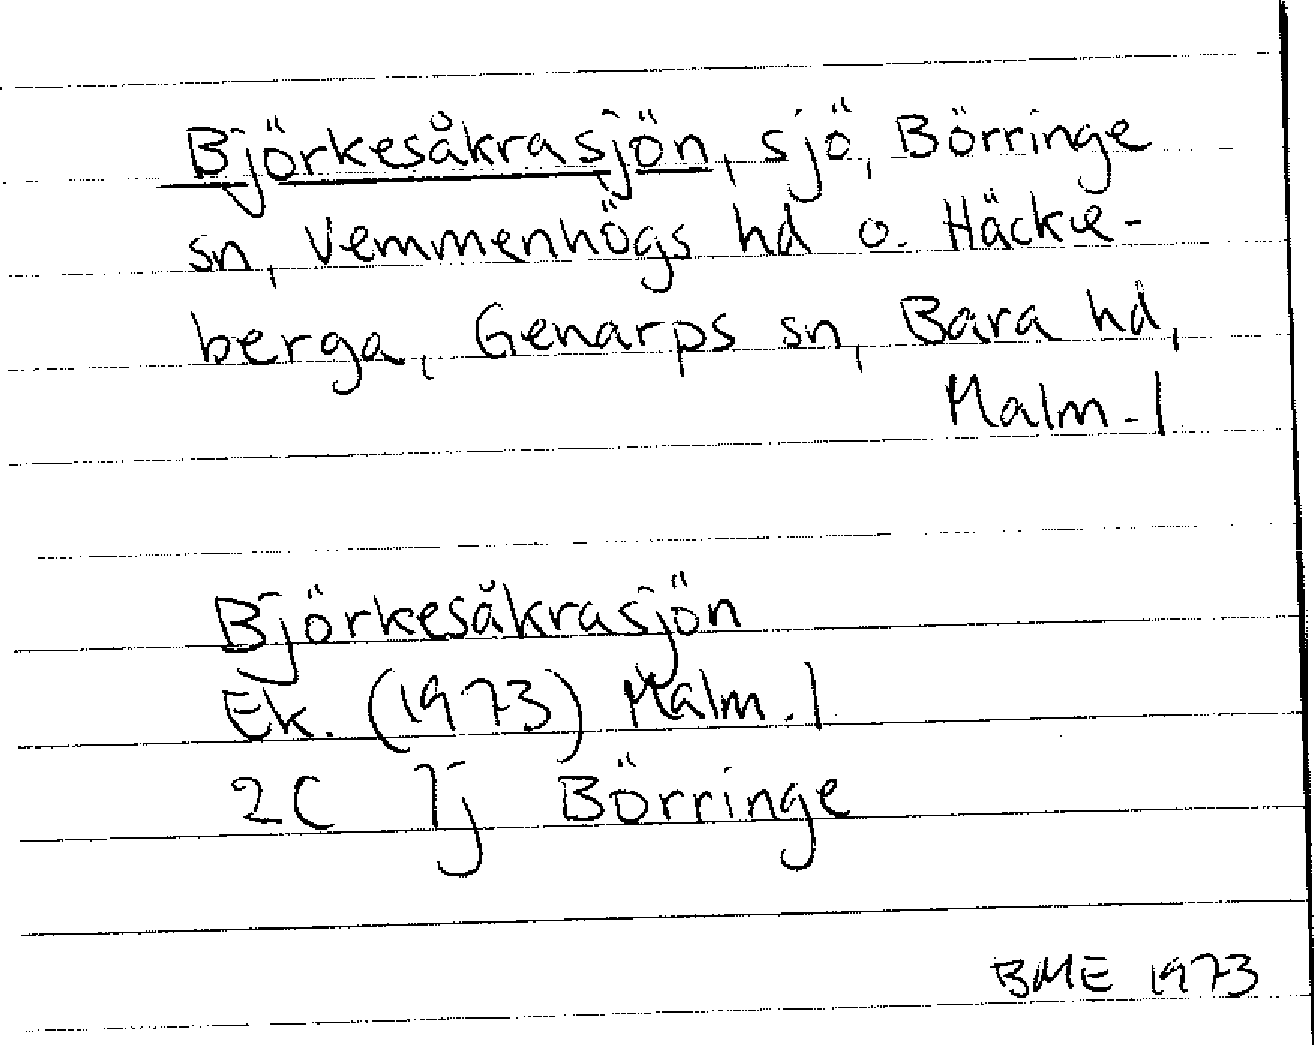 Björkesåkrasjön, sjö, Börringe
sn, Vemmenhögs hd o. Häcke-
berga, Genarps sn, Bara hd,
Malm. l
Björkesåkrasjön
Ek. (1973) Malm. l
2C 7j Börringe
BME 1973